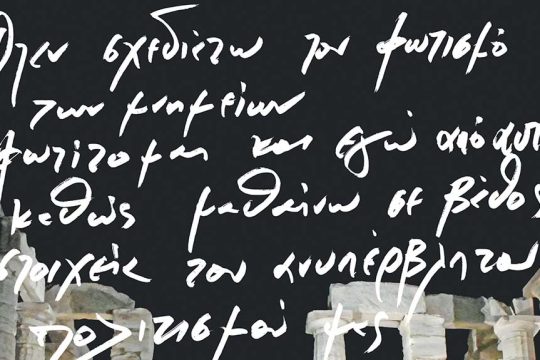 Όταν σχεδιάζω τον φωτισμό
των μνημείων
φωτίζομαι και εγώ από αυτ
καθώς μαθαίνω σε βάθος
στοιχεία του ανυπέρβλητου
πολιτισμού μας